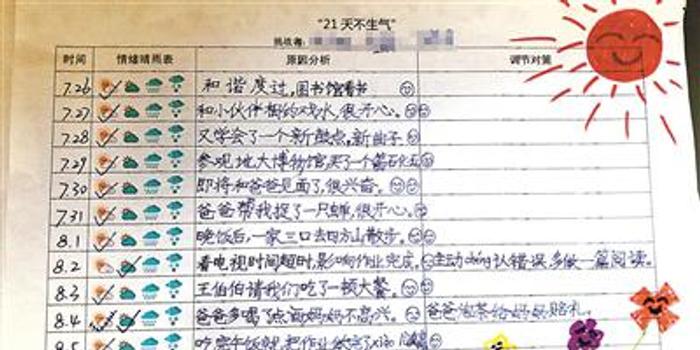 "21 天不生气"
挑战者:
时间 情绪晴雨表 原因分析 调节对策
7.26 和谐度过,图书馆看书
7.27 和小伙伴 戏水,很开心。
7.28 又学会了一个新 点,新曲子
7.29 参观地大博物馆,买了一个 石
7.30 即将和爸爸见面了,很兴奋。
7.31 爸爸帮我捉了一只蝉,很开心。
8.1 晚饭后,一家三口去四方山散步。
8.2 看电视时间超时,影响作业完成。 主动 认错误,多做一篇阅读。
8.3 王伯伯请我们吃了一顿大餐。
8.4 爸爸多喝了点酒妈妈不高兴。 爸爸泡茶给妈妈赔礼。
8.5 吃完午饭就把作业